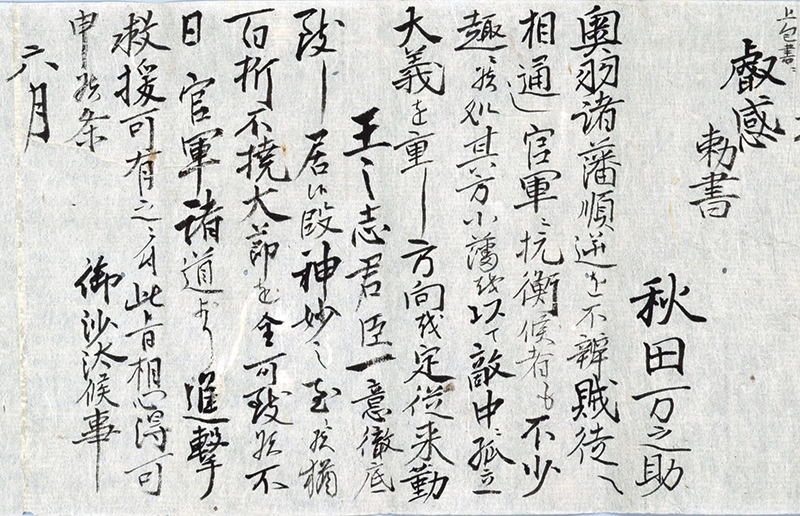 上包書ニ
叡感
勅書
秋田万之助
奥羽諸藩順逆を不辨賊徒ニ
相通官軍ニ抗衡候者も不少
趣ニ候処其方小藩を以て敵中ニ孤立
大義を重し方向を定従来勤
王之志君臣一意徹底
致し居候段神妙之至候猶
百折不撓大節を全可致候不
日官軍諸道より進撃
救援可有之ニ付此旨相心得可
申候条
御沙汰候事
六月